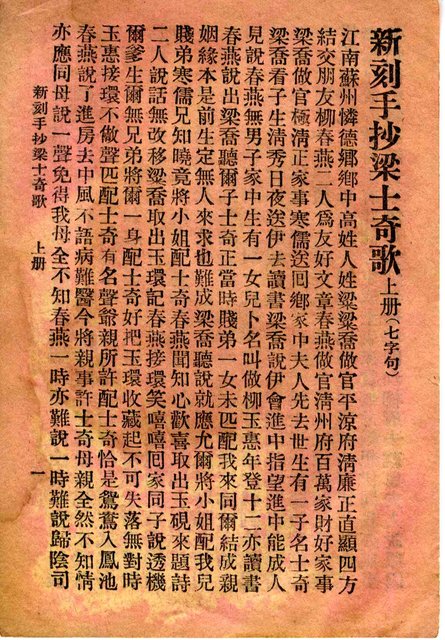 新刻手抄梁士奇歌上册(七字句)
江南蘇州憐德鄉鄉中高姓人姓梁梁喬做官平凉府清廉正直顯四方
結交朋友柳春燕二人爲友好文章春燕做官清州府百萬家財好家事
梁喬做官極清正家事寒儒送囘鄉家中夫人先去世生有一子名士奇
梁喬看子生清秀日夜送伊去讀書梁喬說伊會進中指望進中能成人
兒說春燕無男子家中生有一女兒卜名叫做柳玉惠年登十二亦讀書
春燕說出梁喬聽爾子士奇正當時賤弟一女未匹配我來同爾結成親
姻緣本是前生定無人來求也難成梁喬聽說就應允爾將小姐配我兒
賤弟寒儒兄知曉竟將小姐配士奇春燕聞知心歡喜取出玉硯來題詩
二人說話無改移梁喬取出玉環記春燕接環笑嘻嘻囘家同子說透機
爾爹生爾無兄弟將爾一身配士奇好把玉環收藏起不可失落無對時
玉惠接環不做聲匹配士奇有名聲爺親所許配士奇恰是鴛鴦入鳳池
春燕說了進房去中風不語病難醫今將親事許士奇母親全然不知情
亦應同母說一聲免得我母全不知春燕一時亦難說一時難說歸陰司
新刻手抄梁士奇歌 上册 一